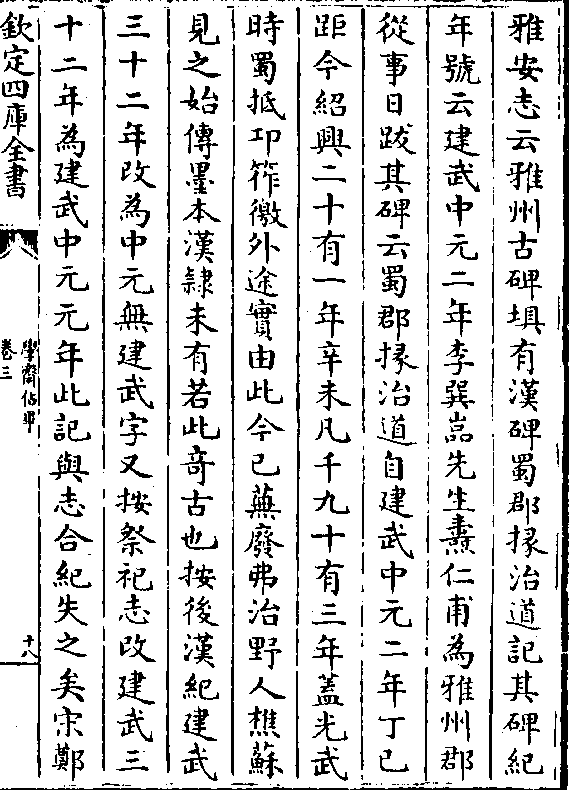 雅安志云雅州古碑埧有漢碑蜀郡掾治道記其碑紀
年號云建武中元二年李巽嵓先生燾仁甫為雅州郡
從事日跋其碑云蜀郡掾治道自建武中元二年丁巳
距今紹興二十有一年辛未凡千九十有三年蓋光武
時蜀抵卭筰徼外途實由此今已蕪廢弗治野人樵蘇
見之始傳墨本漢隷未有若此竒古也按後漢紀建武
三十二年改為中元無建武字又按祭祀志改建武三
十二年為建武中元元年此記與志合紀失之矣宋鄭
欽定四庫全書
學齋佔畢
卷三
十八